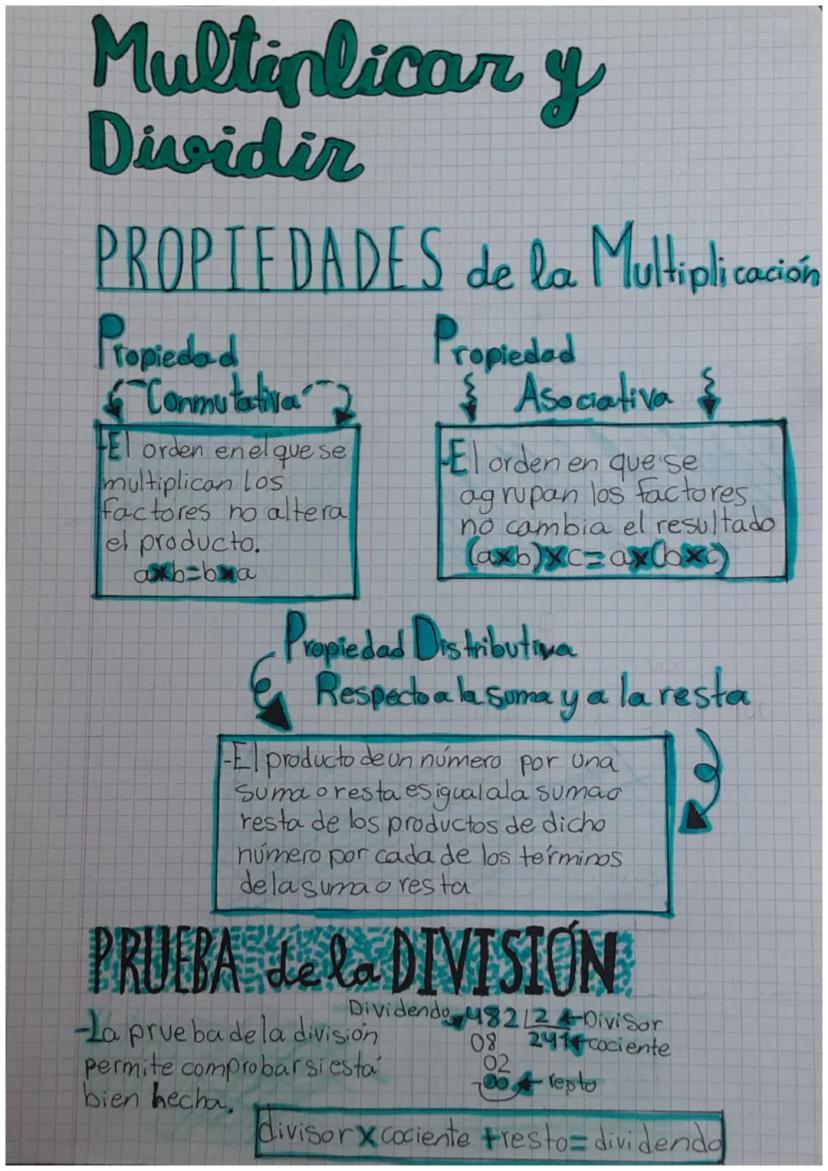 Multiplicar y
Dividir
PROPIEDADES de la Multiplicación
Propiedad
"Conmutativa"
-El orden en el que se
multiplican los
factores no altera
el producto.
axb=bxa
Propiedad
Asociativa
-El orden en que se
agrupan los factores
no cambia el resultado
(axb)xc=ax(bxc)
Propiedad Distributiva
Respecto a la suma y a la resta
-El producto de un número por una
suma o resta es igual a la suma o
resta de los productos de dicho
número por cada de los términos
de la suma o resta
PRUEBA de la DIVISIÓN
-La prueba de la división
permite comprobar si está
bien hecha.
Dividendo 482 2 Divisor
08 241 cociente
02
00 resto
divisor x cociente + resto = dividendo